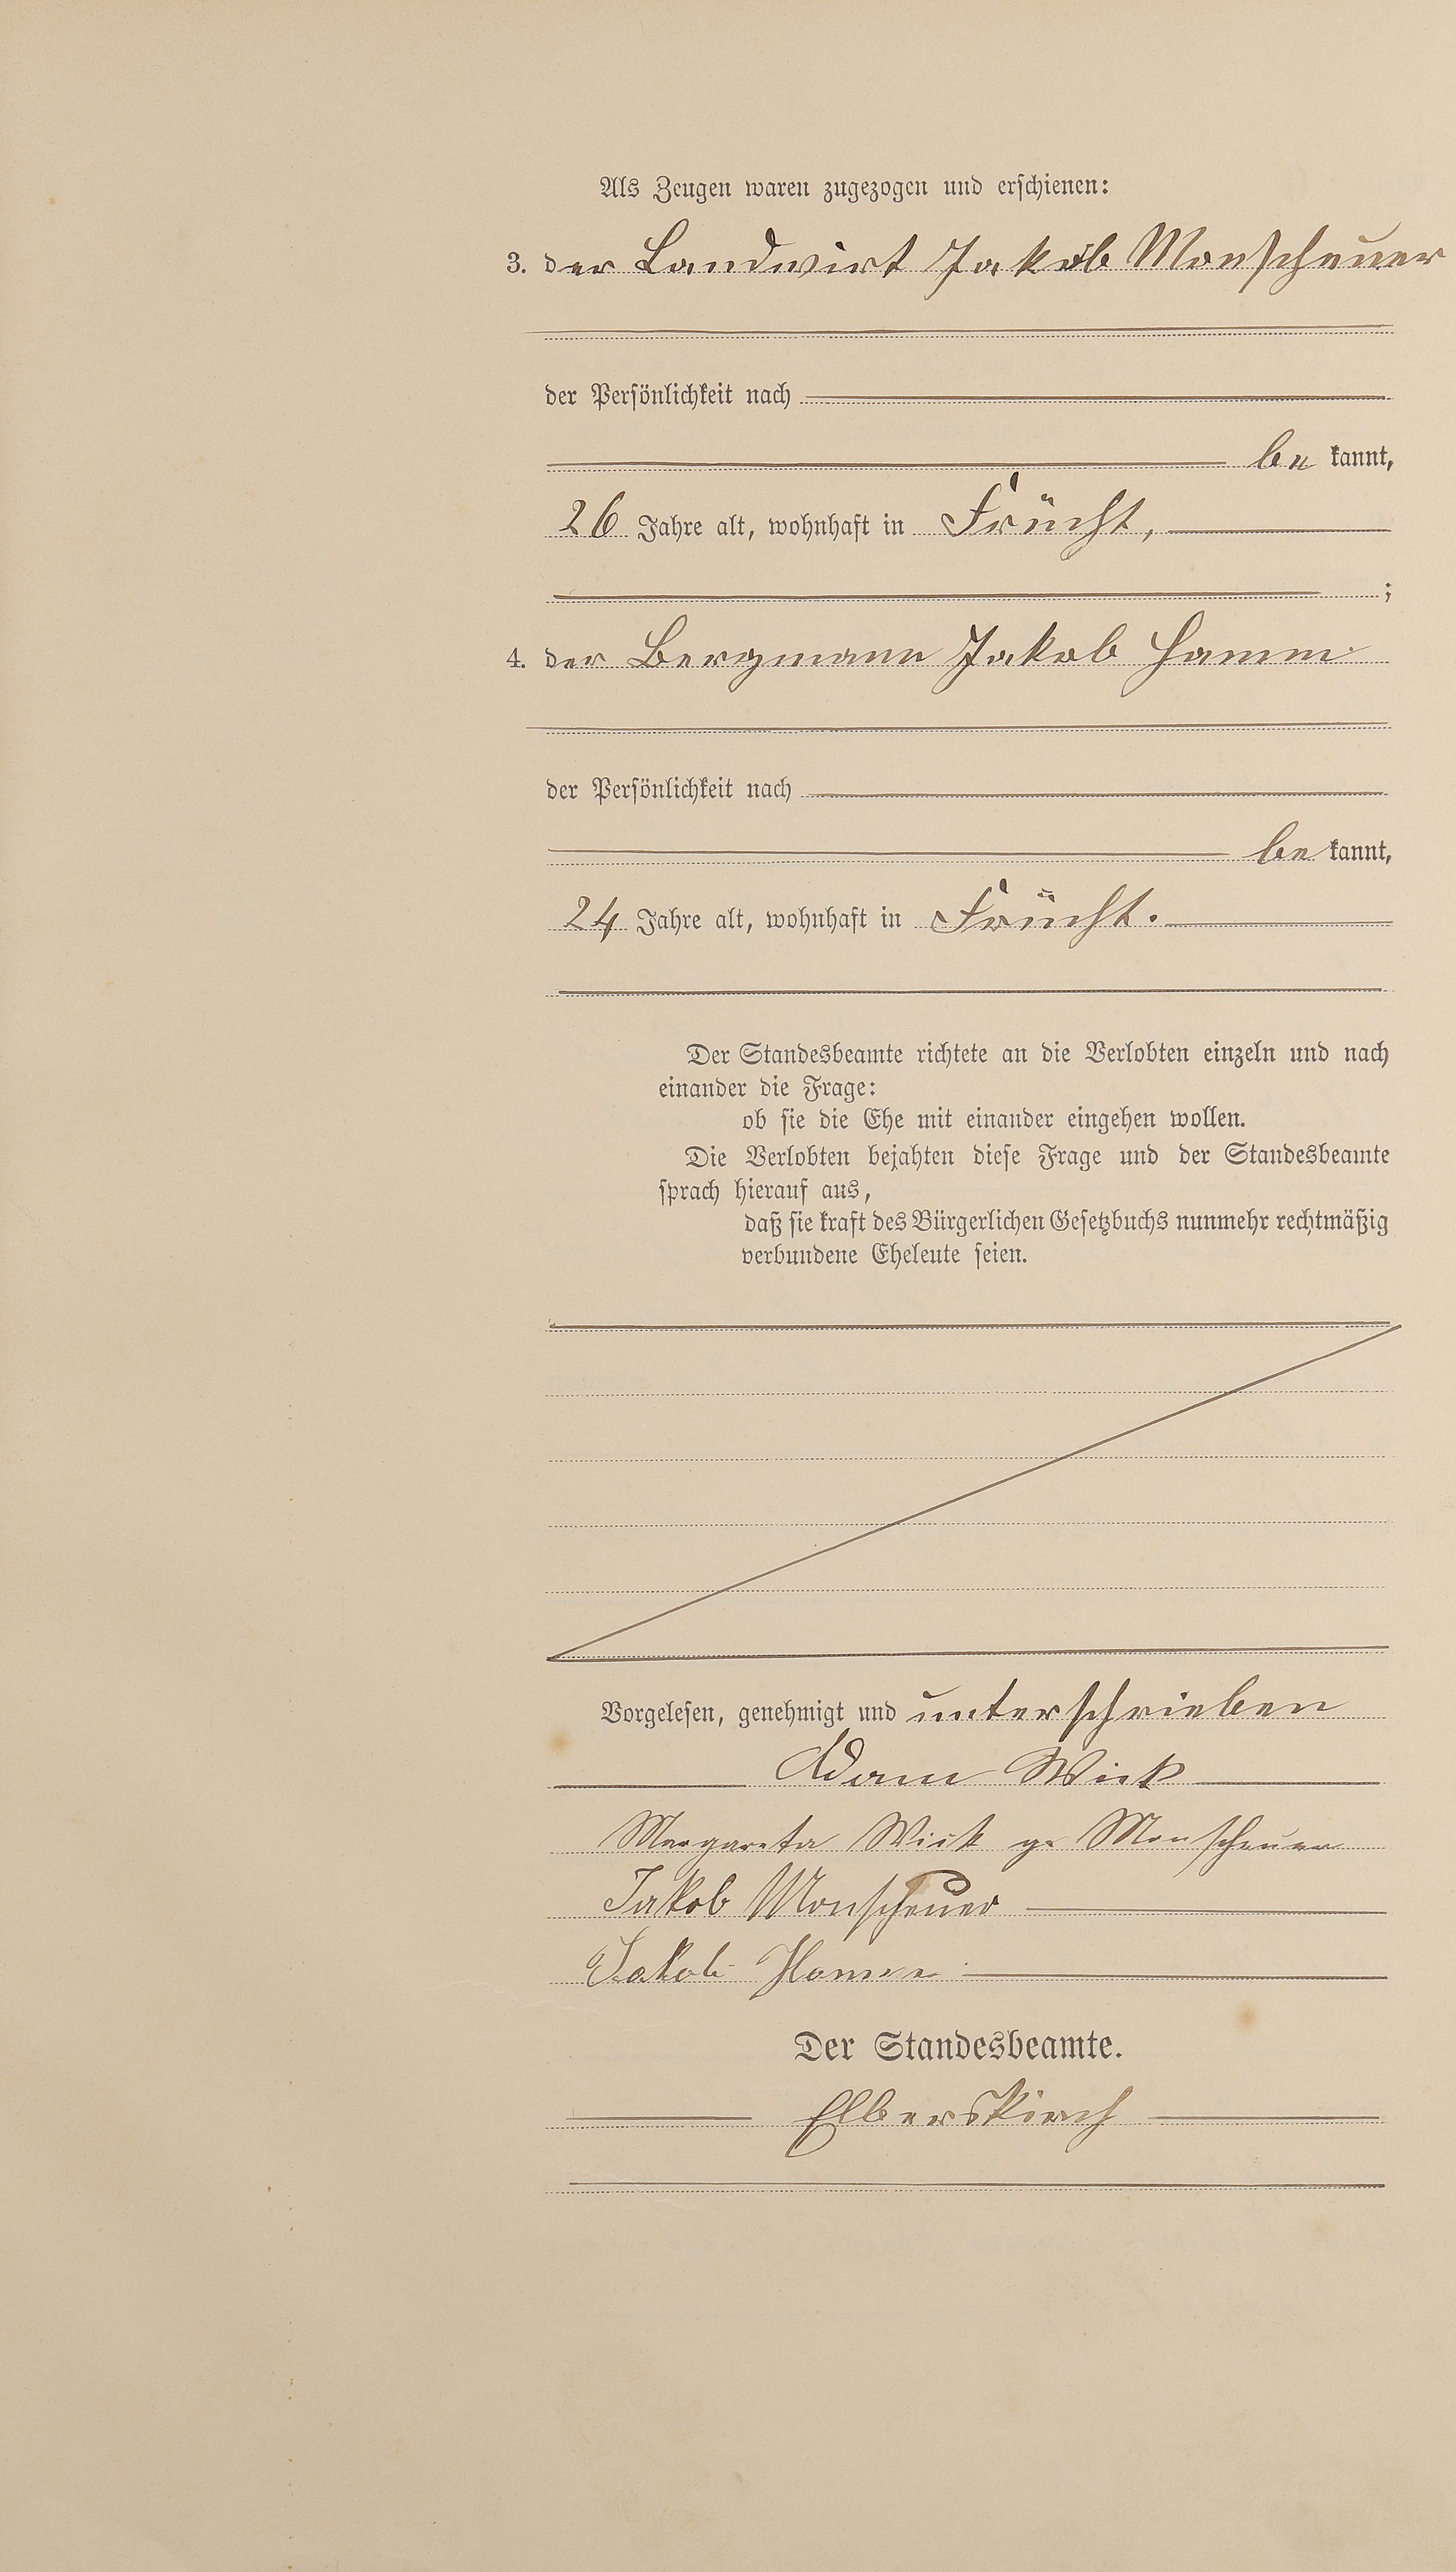 Als Zeugen waren zugezogen und erschienen:
3. der Landwirt Jakob Monscheuer
der Persönlichkeit nach
be kannt,
26 Jahre alt, wohnhaft in Frücht,
;
4. der Bergmann Jakob Hamm
der Persönlichkeit nach
be kannt,
24 Jahre alt, wohnhaft in Frücht.
Der Standesbeamte richtete an die Verlobten einzeln und nach
einander die Frage:
ob sie die Ehe mit einander eingehen wollen.
Die Verlobten bejahten diese Frage und der Standesbeamte
sprach hierauf aus,
daß sie kraft des Bürgerlichen Gesetzbuchs nunmehr rechtmäßig
verbundene Eheleute seien.
Vorgelesen, genehmigt und unterschrieben
Adam Wick
Margareta Wick g. Monscheuer
Jakob Monscheuer
Jakob Hamm
Der Standesbeamte.
Elberskirch